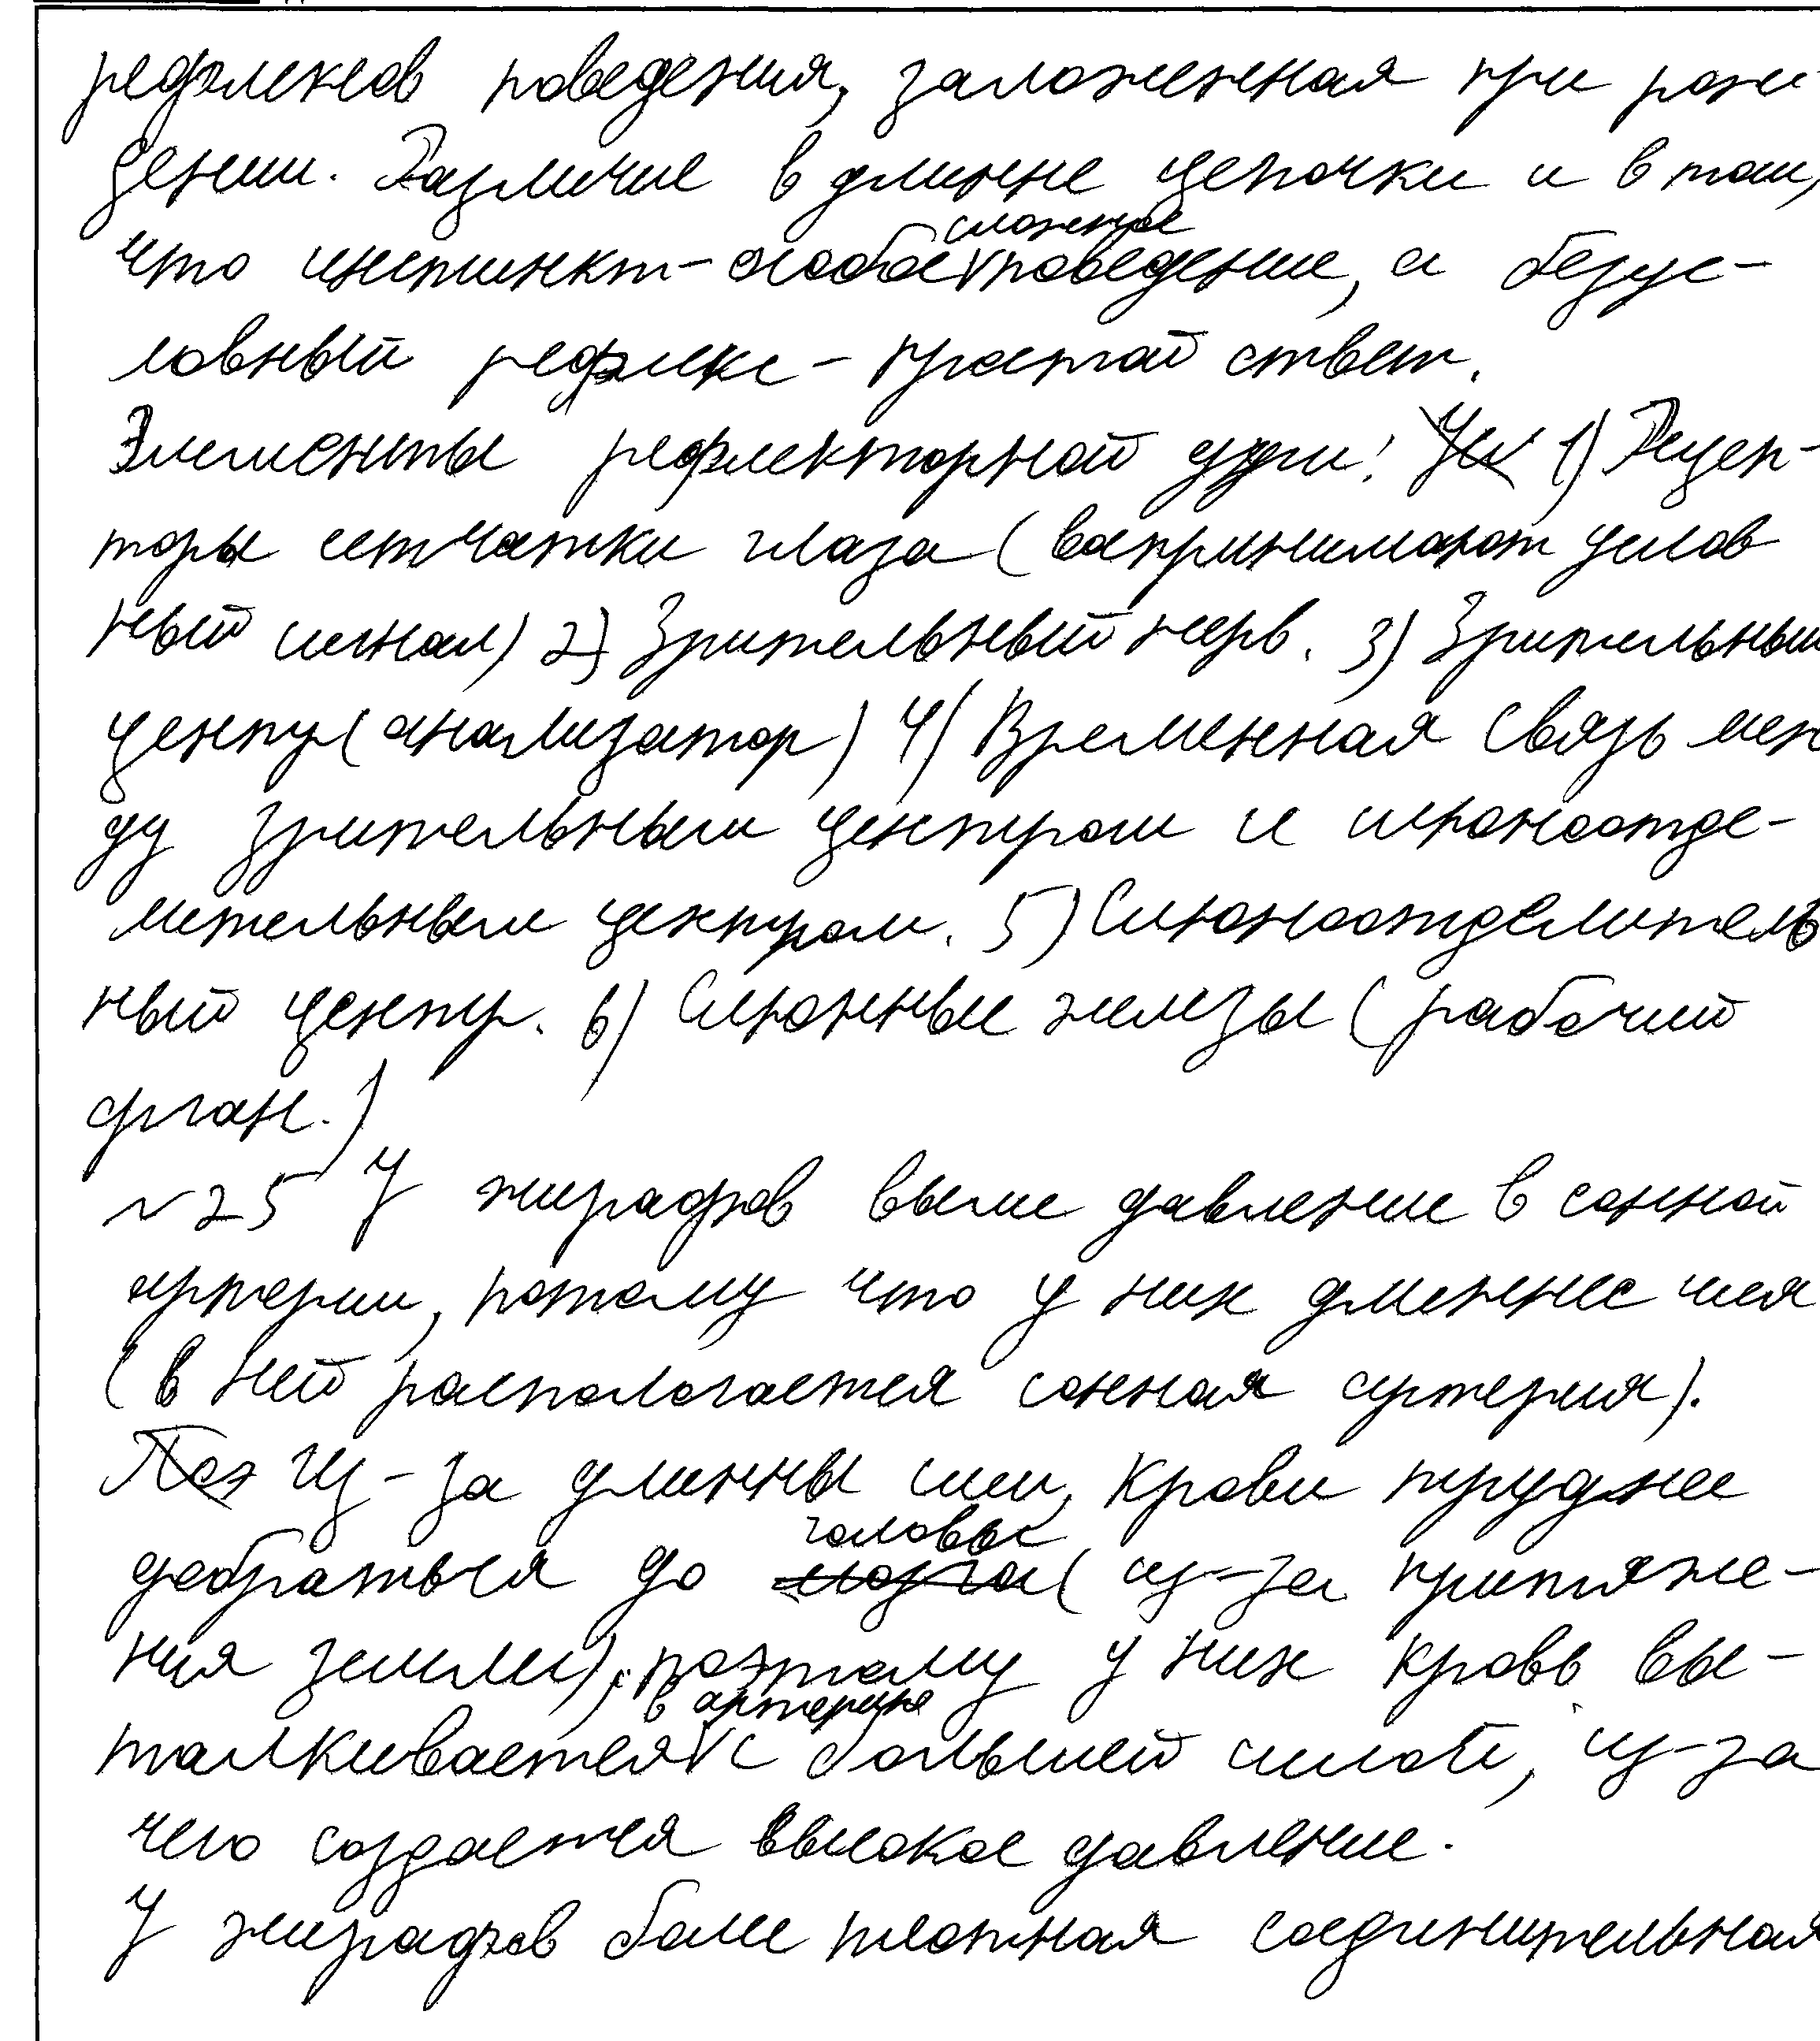 рефлексов поведения, заложенная при рож
дении. Различие в длинне цепочки и в том,
что инстинкт - особое сложное поведение, а безус-
ловный рефлекс - простой ответ.
Элементы рефлекторной дуги: 1) Рецеп-
торы сетчатки глаза (воспринимают услов
ный сигнал) 2) Зрительный нерв. 3) Зрительный
центр (анализатор) 4) Временная связь меж
ду зрительным центром и слюноотде-
лительным центром. 5) Слюноотделитель
ный центр. 6) Слюнные железы (рабочий
орган.)
№25 У жирафов выше давление в сонной
артерии, потому что у них длиннее шея
(в ней распологается сонная артерия).
Из-за длинны шеи, крови труднее
добраться до головы (из-за притяже-
ния земли), поэтому у них кровь вы-
талкивается в артерию с большей силой, из-за
чего создается высокое давление.
У жирафов более плотная соединительная